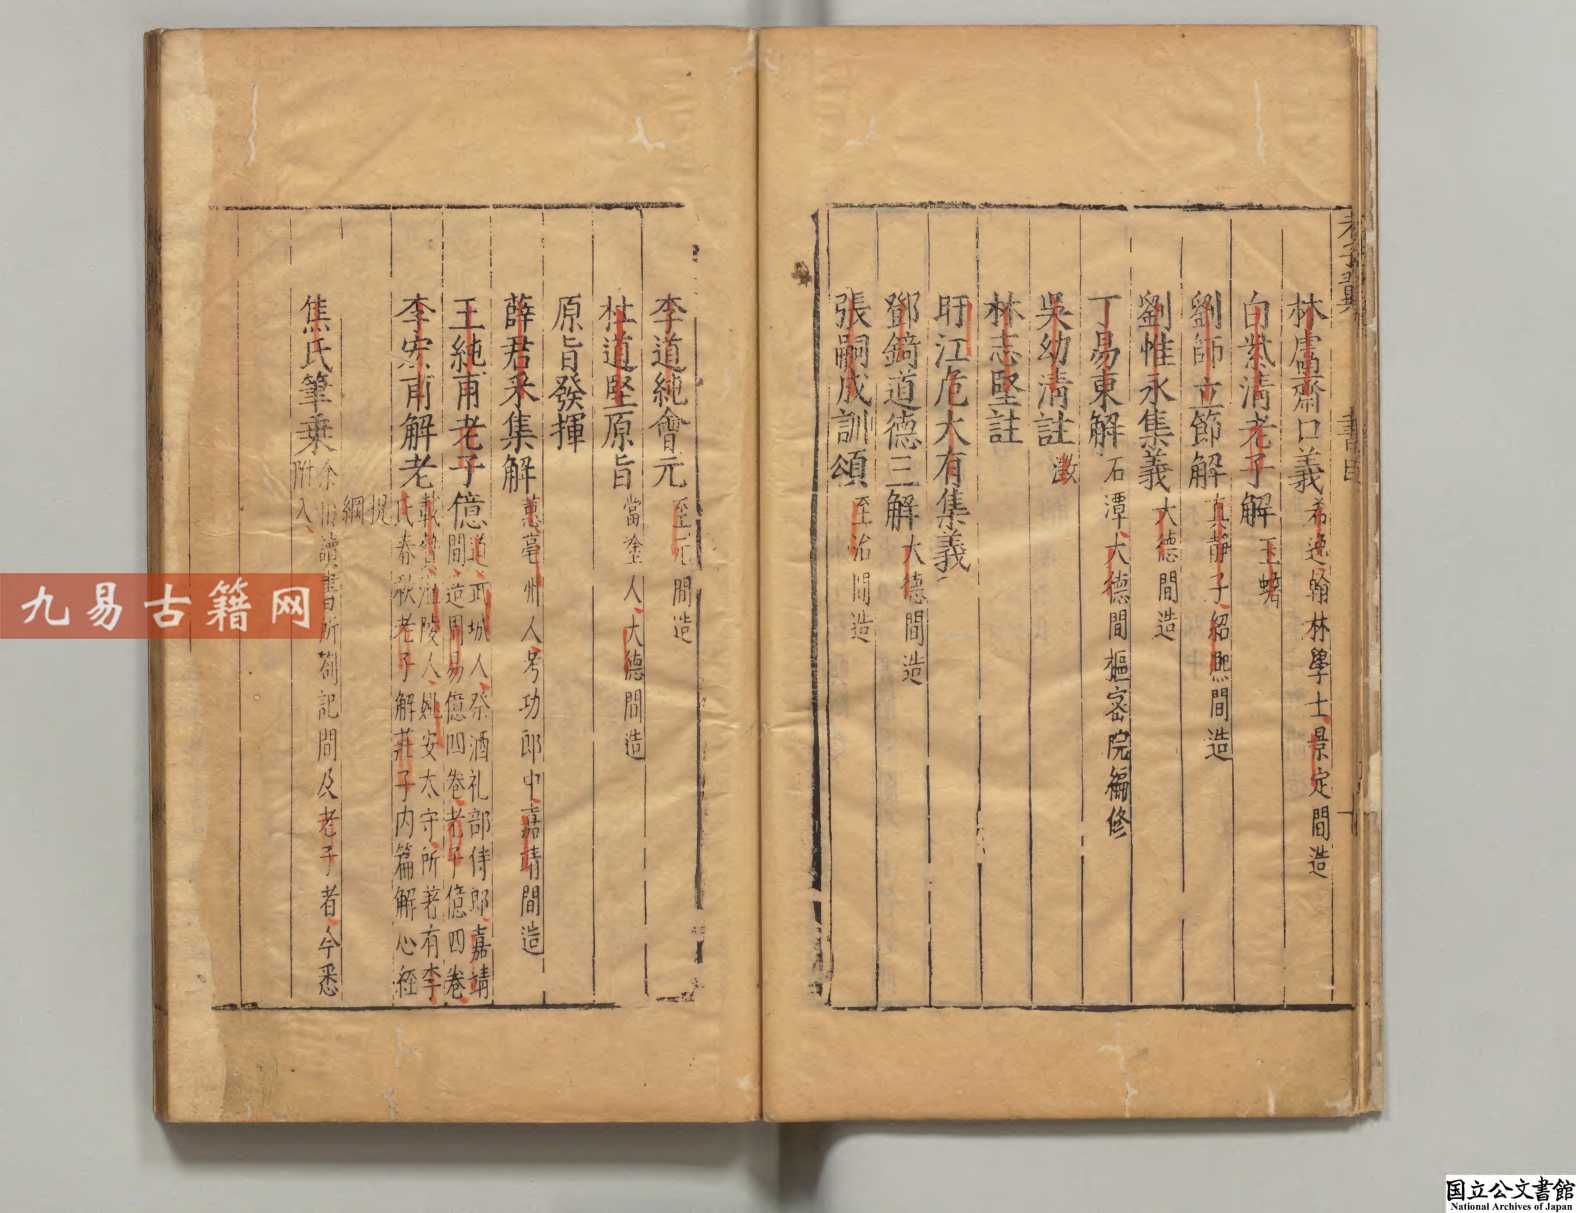 林鬳齋口義希逸翰林學士景定間造
白紫清老子解玉蟾
劉師立節解真靜子紹熈間造
劉惟永集義大德間造
丁易東解石潭大德間樞密院編修
吳幼清註澂
林志堅註
盱江危大有集義
鄧錡道德三解大德間造
張嗣成訓頌至治間造
李道純會元至元間造
杜道堅原旨當塗人大德間造
原旨發揮
薛君采集解蕙亳州人考功郎中嘉靖間造
王純甫老子億道武城人祭酒礼部侍郎嘉靖
間造周易億四卷老子億四卷
李宏甫解老載贄温陵人姚安太守所著有李
氏春秋老子解莊子内篇解心經
提綱
焦氏筆乗余讀書所劄記間及老子者今悉
附入
九易古籍网
国立公文書館
National Archives of Japan